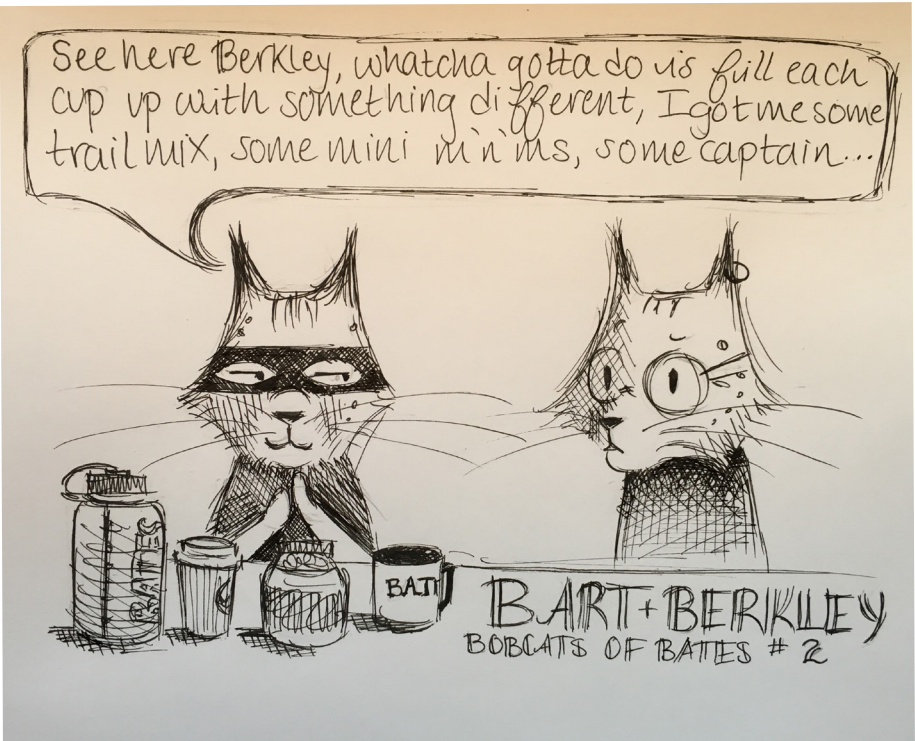 See here Berkley, whatcha gotta do is fill each
cup up with something different, I got me some
trail mix, some mini m'n'ms, some captain...
BATES
BAT
BART + BERKLEY
BOBCATS OF BATES # 2